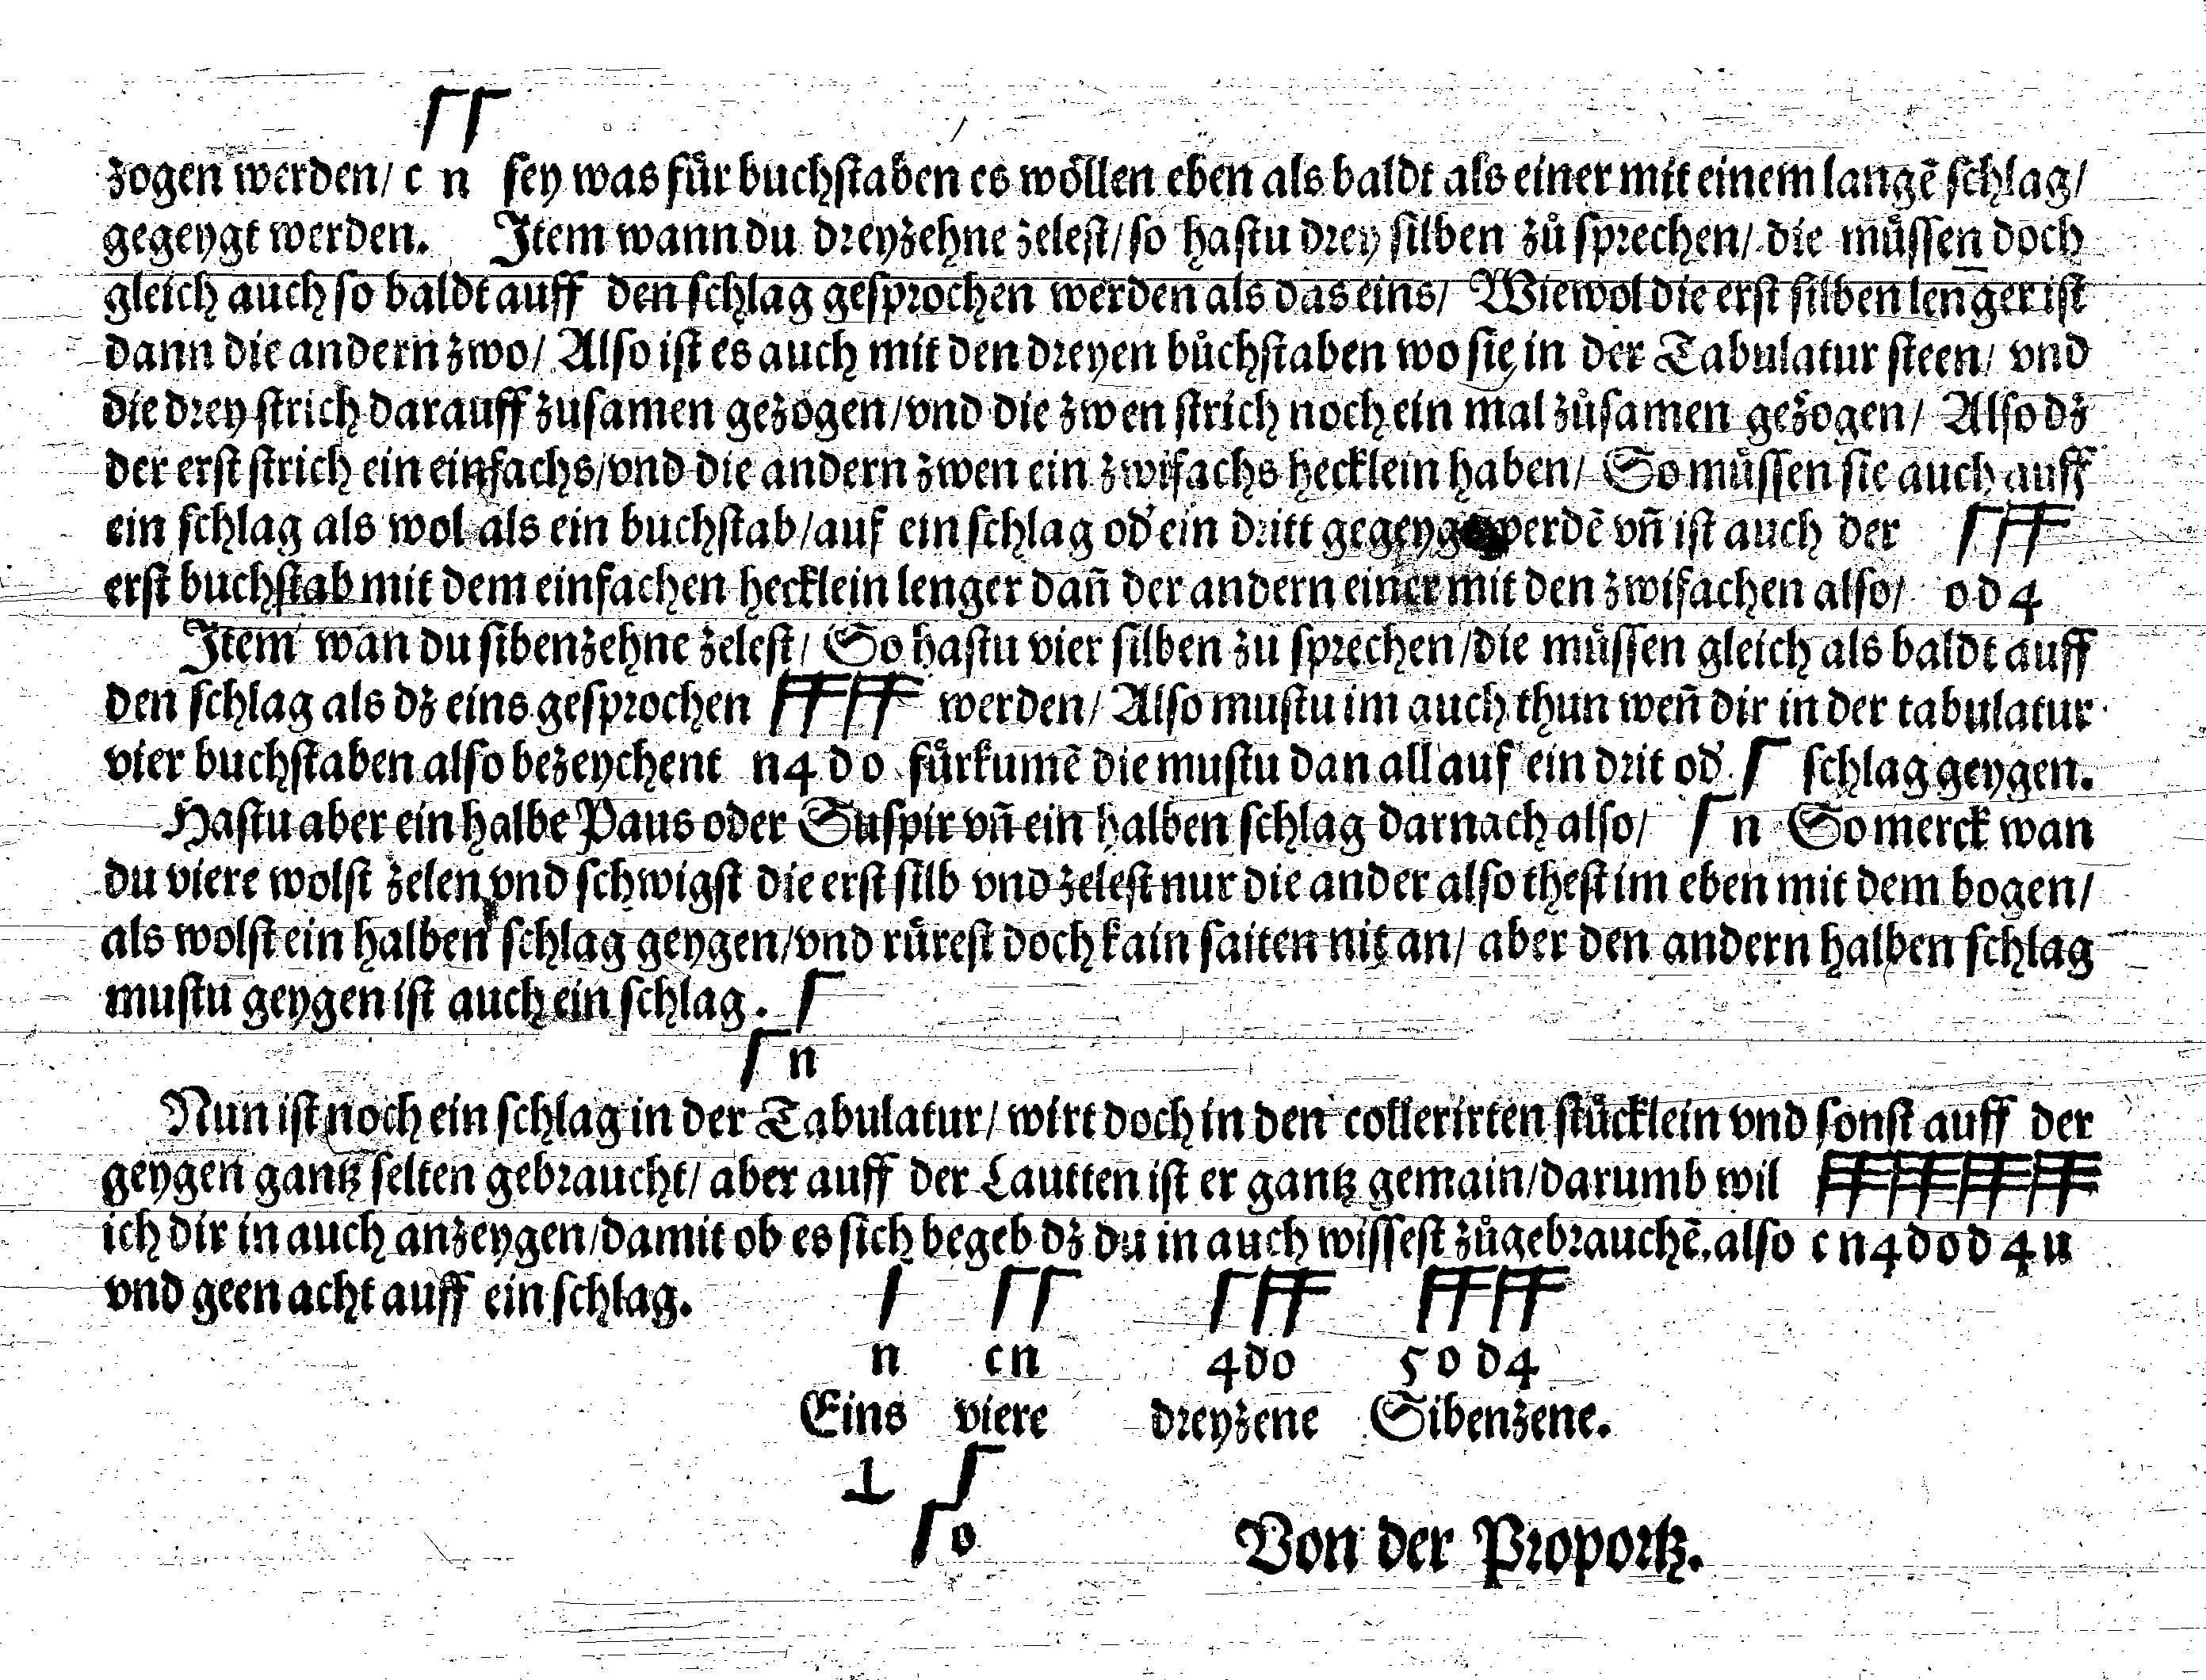 zogen werden/ c n sey was für buchstaben es wöllen eben als baldt als einer mit einem langē schlag/
gegeygt werden. Item wann du dreyzehne zelest/ so hastu drey silben zů sprechen/ die müssen doch
gleich auch so baldt auff den schlag gesprochen werden als das eins/ Wiewol die erst silben lenger ist
dann die andern zwo/ Also ist es auch mit den dreyen bůchstaben wo sie in der Tabulatur steen/ vnd
die drey strich darauff zusamen gezogen/ vnd die zwen strich noch ein mal zůsamen gezogen/ Also dz
der erst strich ein einfachs/ vnd die andern zwen ein zwifachs hecklein haben/ So müssen sie auch auff
ein schlag als wol als ein buchstab/ auf ein schlag od' ein dritt werdē vñ ist auch der
erst buchstab mit dem einfachen hecklein lenger dañ der andern einer mit den zwifachen also/ o d 4
Item wan du sibenzehne zelest/ So hastu vier silben zu sprechen/ die müssen gleich als baldt auff
den schlag als dz eins gesprochen werden/ Also mustu im auch thun weñ dir in der tabulatur
vier buchstaben also bezeychent n 4 d o fürkumē die mustu dan all auf ein drit od' schlag geygen.
Hastu aber ein halbe Paus oder Suspir vñ ein halben schlag darnach also/ n So merck wan
du viere wolst zelen vnd schwigst die erst silb vnd zelest nur die ander also thest im eben mit dem bogen/
als wolst ein halben schlag geygen/ vnd rürest doch kain saiten nit an/ aber den andern halben schlag
mustu geygen ist auch ein schlag.
n
Nun ist noch ein schlag in der Tabulatur/ wirt doch in den collerirten stücklein vnd sonst auff der
geygen gantz selten gebraucht/ aber auff der Lautten ist er gantz gemain/ darumb wil
ich dir in auch anzeygen/ damit ob es sich begeb dz du in auch wissest zůgebrauchē. also c n 4 d o d 4 n
vnd geen acht auff ein schlag.
n cn 4do 5 o d 4
Eins viere dreyzene Sibenzene.
o
Von der Proportz.